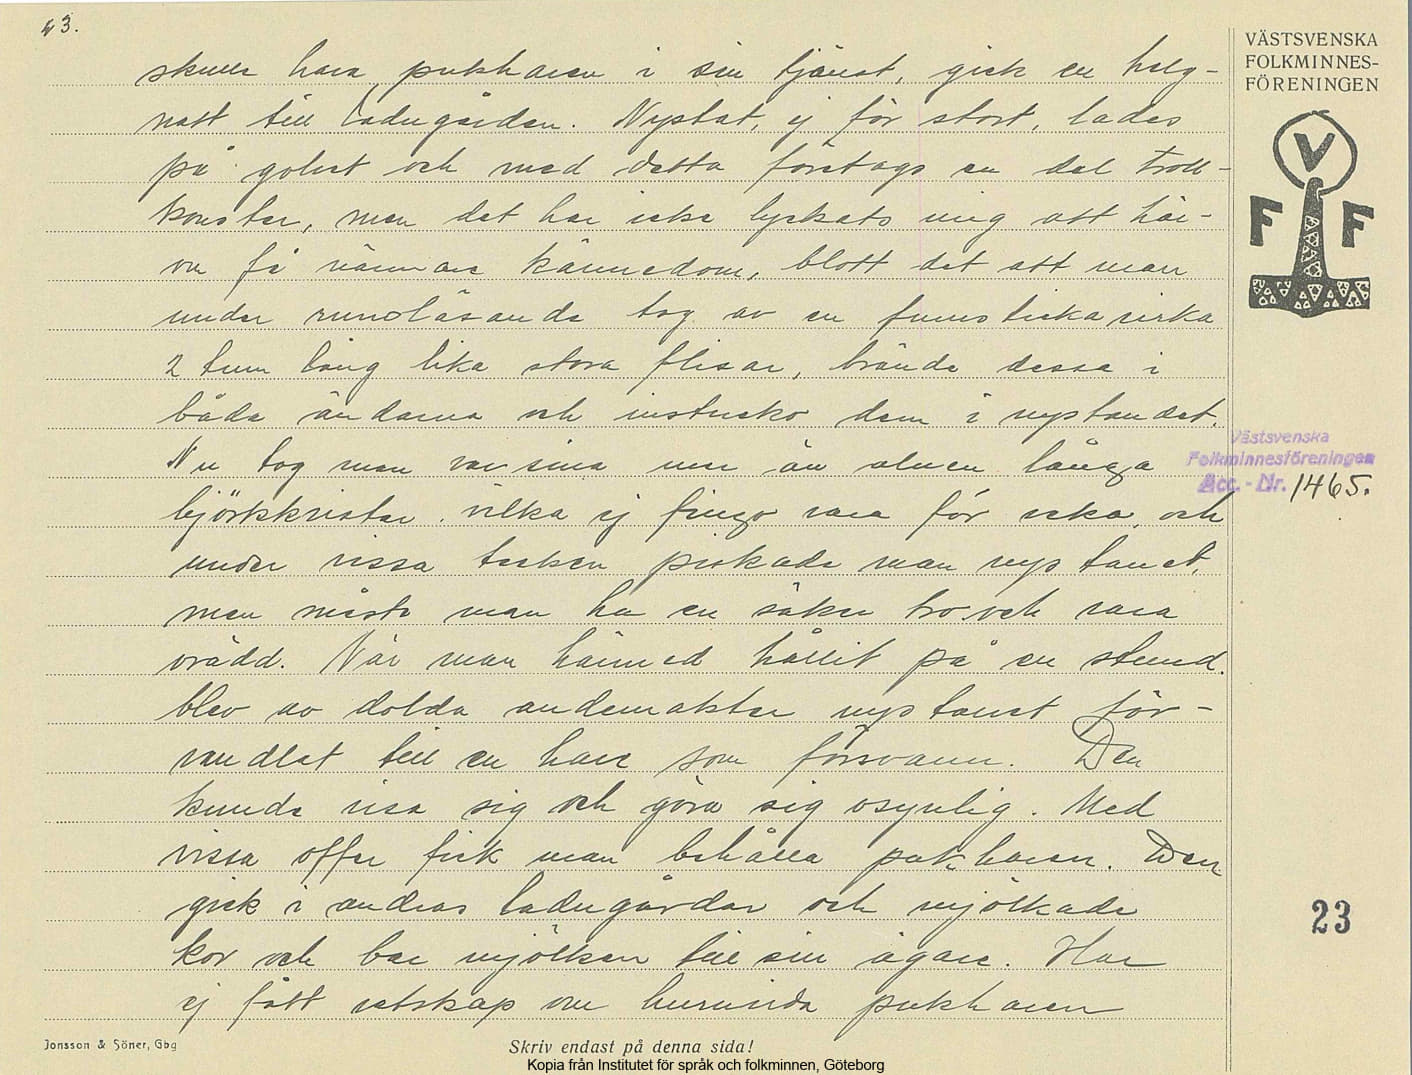 23.
VÄSTSVENSKA
FOLKMINNES-
FÖRENINGEN
V
F F
skulle hava pukharen i sin tjänst, gick en helg-
natt till ladugården. Nystat, ej för stort, lades
på golvet och med detta företogs en del troll-
konster, men det har icke lyckats mig att här-
om få närmare kännedom, blott det att man
under runoläsande tog av en furusticka cirka
2 tum lång lika stora flisar, brände dessa i
båda ändarna och instucko dem i nystandet.
Nu tog man var sina mer än alnen långa
björkkvistar, vilka ej fingo vara för veka, och
under vissa tecken piskade man nystanet,
men måste man ha en säker tro och vara
orädd. När man härmed hållit på en stund
blev av dolda andemakter nystanet för-
vandlat till en hare som försvann. Den
kunde visa sig och göra sig osynlig. Med
vissa offer fick man behålla pukharen. Den
gick i andras ladugårdar och mjölkade
kor och bar mjölken till sin ägare. Har
ej fått vetskap om huruvida pukharen
Västsvenska
Folkminnesföreningen
Acc. - Nr. 1465.
23
Jonsson & Söner, Gbg
Skriv endast på denna sida!
Kopia från Institutet för språk och folkminnen, Göteborg